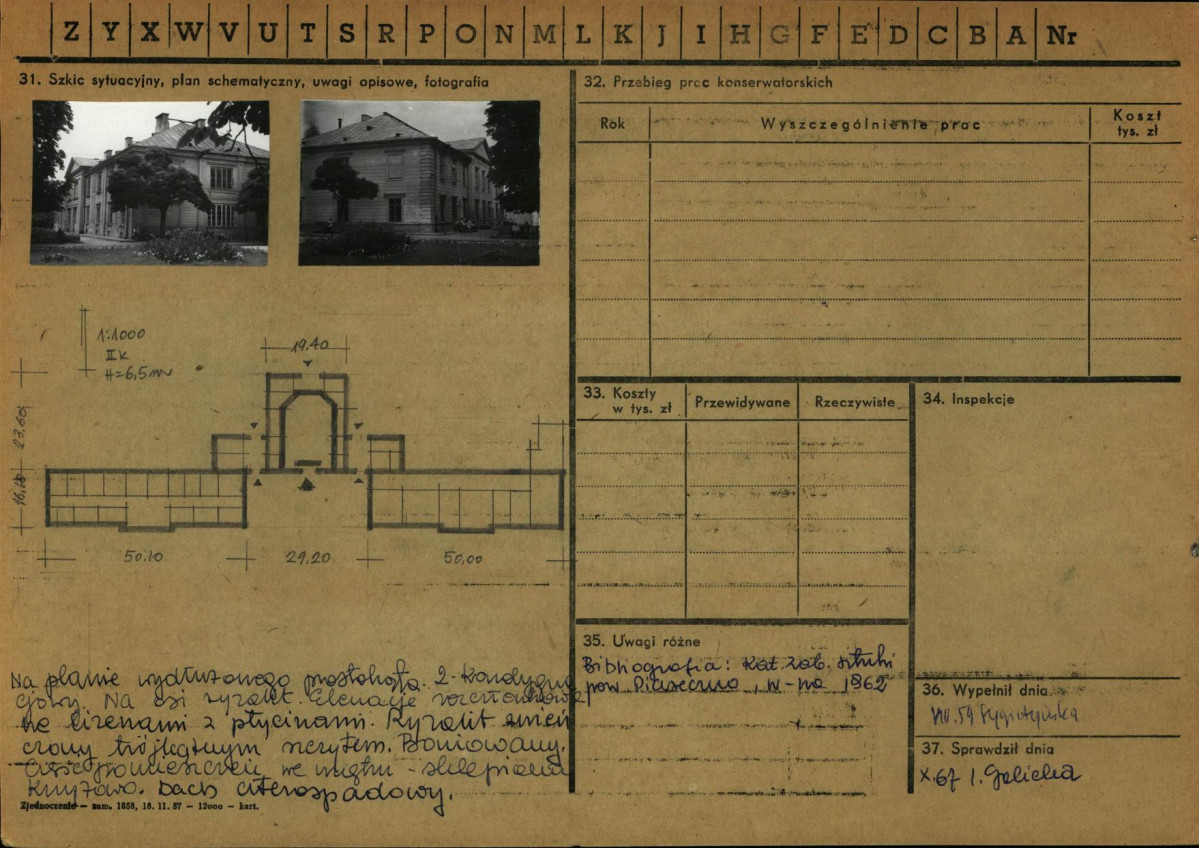 Z Y X W V U T S R P O N M L K J I H G F E D C B A Nr
31. Szkic sytuacyjny, plan schematyczny, uwagi opisowe, fotografia
1:1000
II k
H=6,5m
19.40
23.60
16.10
50.10
29.20
50,00
Na planie wydłużonego prostokąta. 2-kondygna
cjowy. Na osi ryzalit. Elewacje rozczłonkowa
ne lizenami z płycinami. Ryzalit zwień
czony trójkątnym szczytem. Boniowany.
Część pomieszczeń we wnętrzu - sklepiona
krzyżowo. Dach czterospadowy.
Zjednoczenie – zam. 1858, 18. 11. 57 – 12000 – kart.
32. Przebieg prac konserwatorskich
Rok
Wyszczególnienie prac
Koszt
tys. zł
33. Koszty
w tys. zł
Przewidywane
Rzeczywiste
34. Inspekcje
35. Uwagi różne
Bibliografia: Kat. zab. sztuki
pow. Piaseczno, W-wa 1962
36. Wypełnił dnia
VIII.59
37. Sprawdził dnia
X.67 I. Galicka